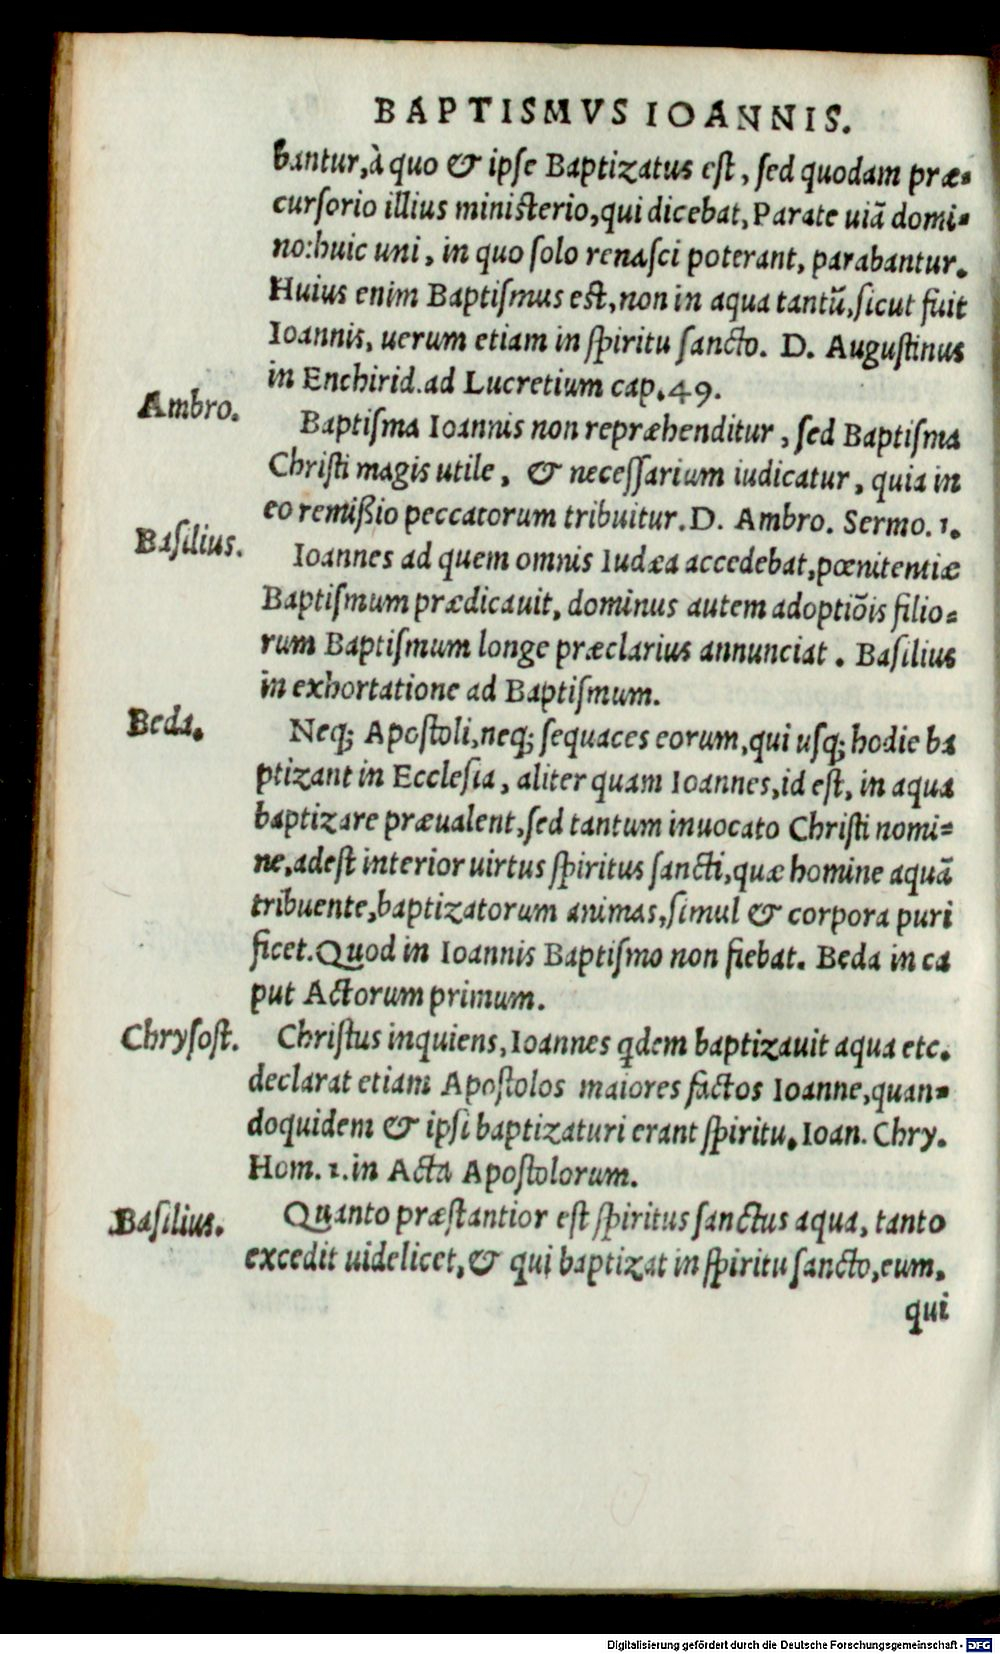 BAPTISMVS IOANNIS.
bantur,à quo & ipſe Baptizatus eſt, ſed quodam præ-
curſorio illius miniſterio,qui dicebat,Parate uiã domi-
no:huic uni, in quo ſolo renaſci poterant, parabantur.
Huius enim Baptiſmus eſt,non in aqua tantũ,ſicut fuit
Ioannis, uerum etiam in ſpiritu ſancto. D. Auguſtinus
in Enchirid.ad Lucretium cap.49.
Ambro.
Baptiſma Ioannis non repræhenditur, ſed Baptiſma
Chriſti magis utile, & neceſſarium iudicatur, quia in
eo remißio peccatorum tribuitur.D. Ambro. Sermo.1.
Baſilius.
Ioannes ad quem omnis Iudæa accedebat,pœnitentiæ
Baptiſmum prædicauit, dominus autem adoptiõis filio-
rum Baptiſmum longe præclarius annunciat. Baſilius
in exhortatione ad Baptiſmum.
Beda.
Neq; Apoſtoli,neq; ſequaces eorum,qui uſq; hodie ba
ptizant in Eccleſia, aliter quam Ioannes,id eſt, in aqua
baptizare præualent,ſed tantum inuocato Chriſti nomi-
ne,adeſt interior uirtus ſpiritus ſancti,quæ homine aquã
tribuente,baptizatorum animas,ſimul & corpora puri
ficet.Quod in Ioannis Baptiſmo non fiebat. Beda in ca
put Actorum primum.
Chryſoſt.
Chriſtus inquiens,Ioannes q̃dem baptizauit aqua etc.
declarat etiam Apoſtolos maiores factos Ioanne,quan-
doquidem & ipſi baptizaturi erant ſpiritu. Ioan. Chry.
Hom. 1.in Acta Apoſtolorum.
Baſilius.
Quanto præſtantior eſt ſpiritus ſanctus aqua, tanto
excedit uidelicet,& qui baptizat in ſpiritu ſancto,eum,
qui
Digitalisierung gefördert durch die Deutsche Forschungsgemeinschaft - DFG